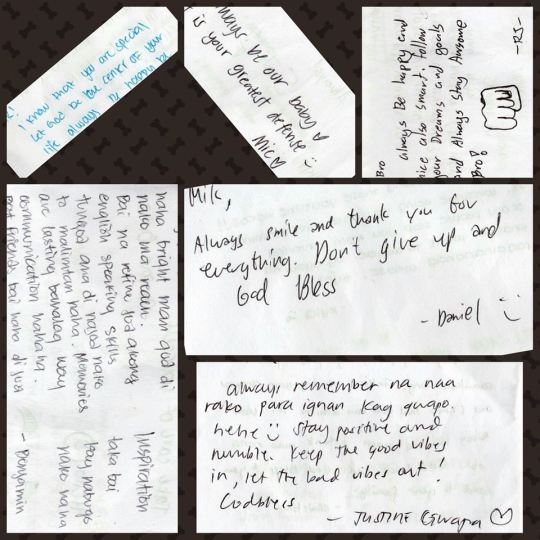 I know that you are special
Let God be the center of your
life always.
always be our baby ♡
is your greatest defense :)
Mic ♡
Bro
always be happy and
nice also smart, follow
your Dreams and goals
and Always Stay Awsome
Bro!
-RJ-
Milk,
Always smile and thank you for
everything. Don't give up and
God Bless
- Daniel :)
haha, bright man gud di
nako ma reach.
Bai na refine jud akong
english speaking skills
tungod ana di najud nako
to malimtan haha. Memories
are lasting banalag way
communication hahaha.
best friends bai naho di jud
Inspiration
taka bai
nako haha
- Benjamin
always remember na naa
rako para ignan kay gwapo
hehe :) Stay positive and
humble. Keep the good vibes
in, let the bad vibes out!
Godbless
- JUSTINE Gwapa ♡